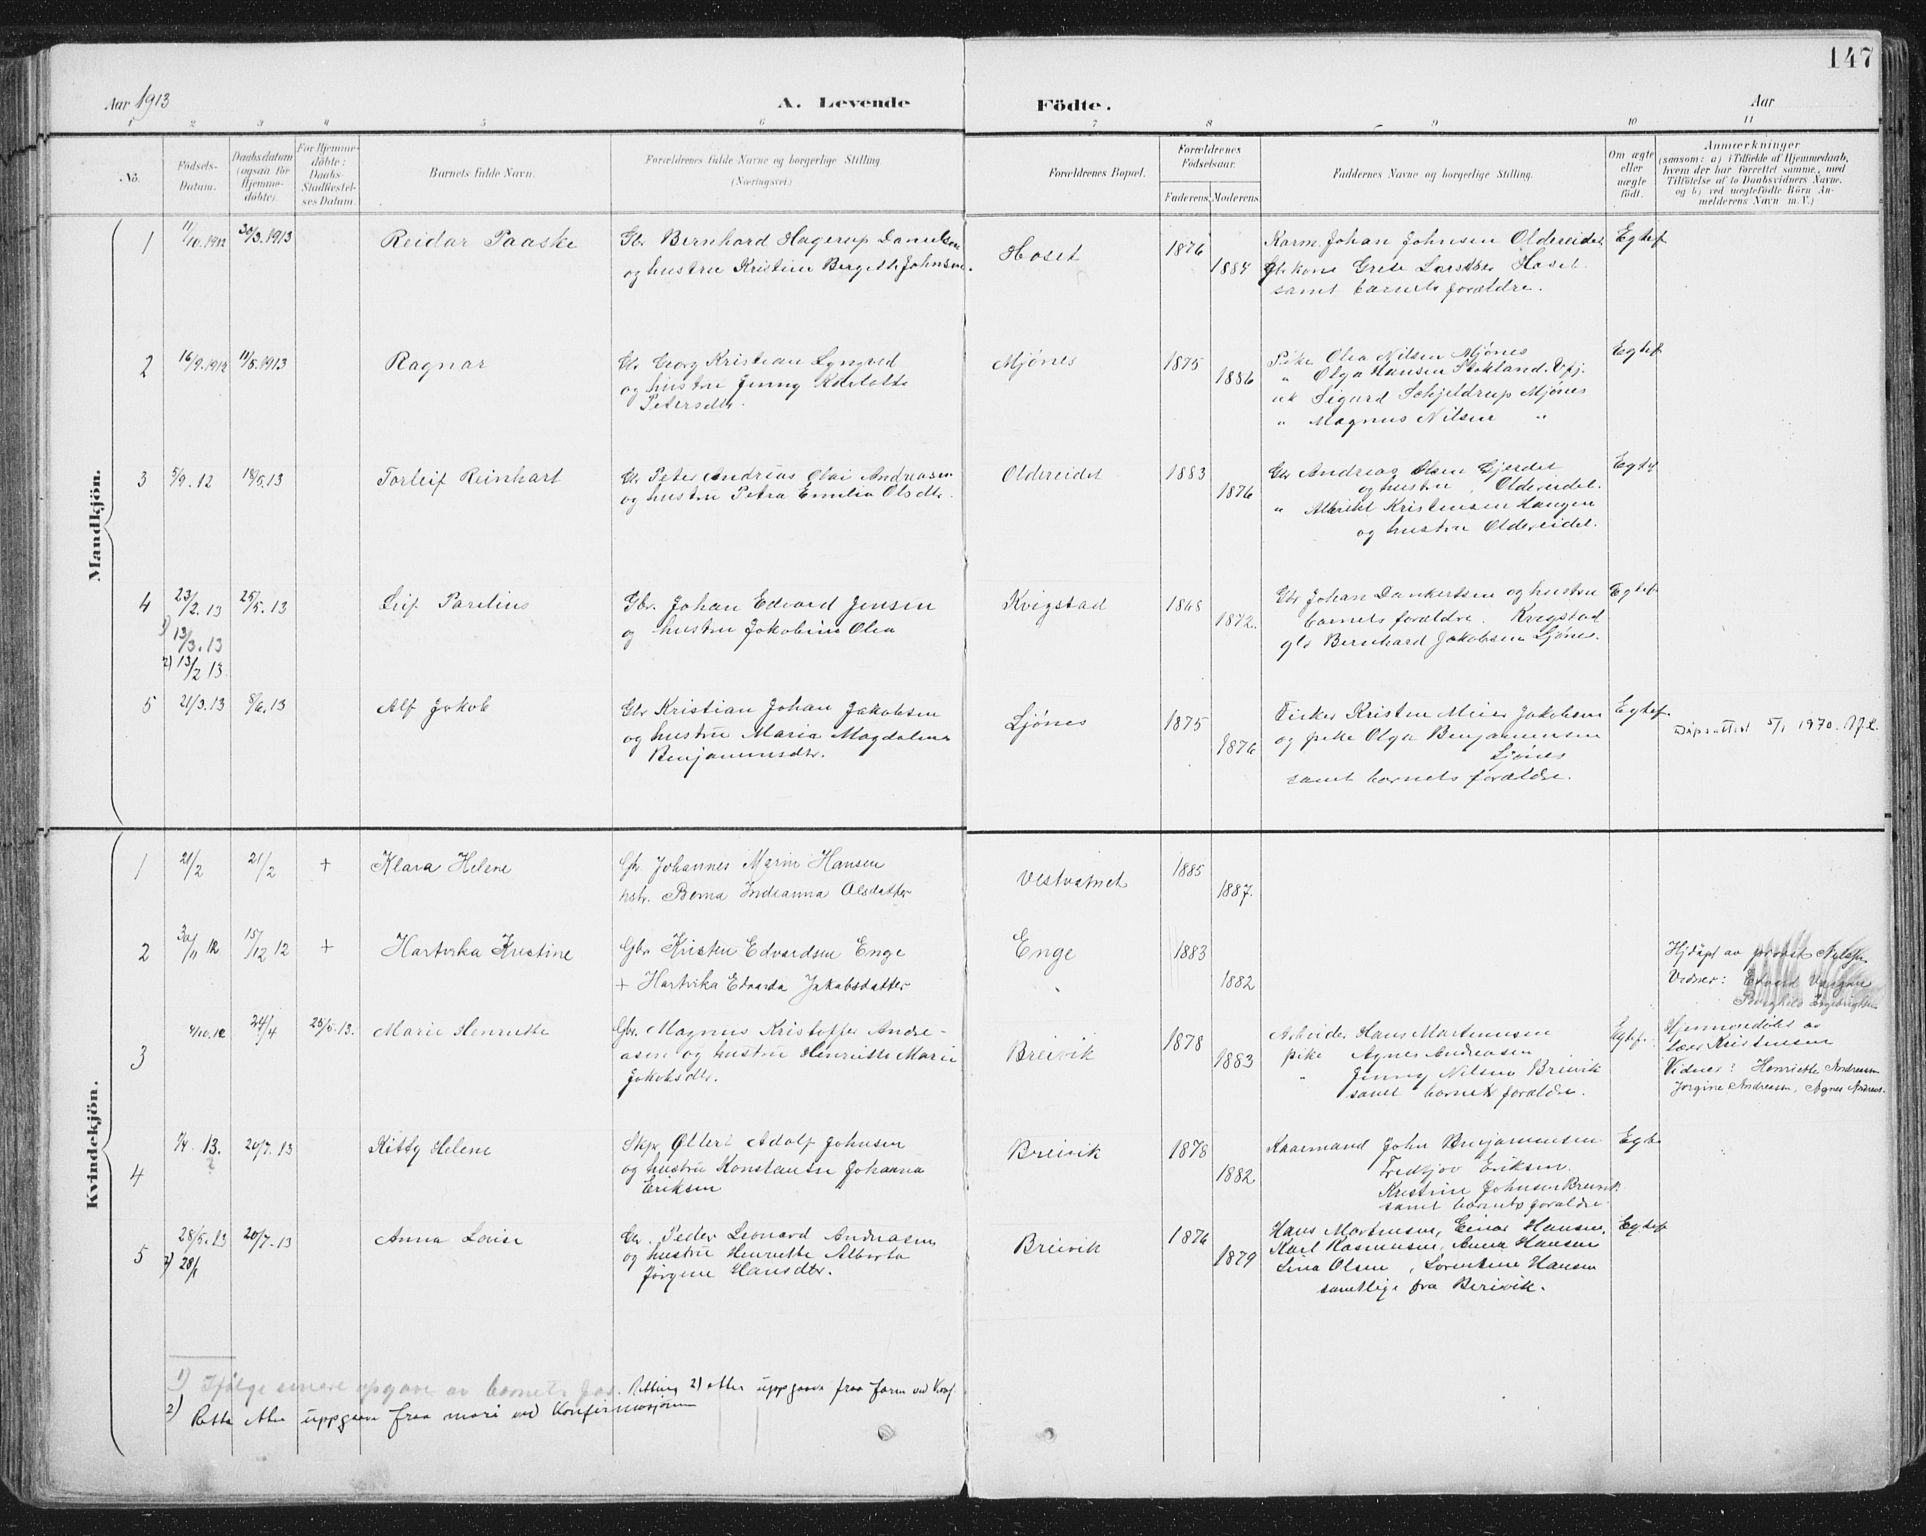 147
Aar 1913
A. Levende Födte.
Aar
1 2 3 4 5 6 7 8 9 10 11
No.
Födsels-Datum.
Daabsdatum (ogsaa for Hjemme-döbte).
For Hjemme-döbte: Daabs-Stadfæstel-ses Datum.
Barnets fulde Navn.
Forældrenes fulde Navne og borgerlige Stilling
(Næringsvei)
Forældrenes Bopæl.
Forældrenes Födselsaar.
Faderens. Moderens.
Faddernes Navne og borgerlige Stilling.
Om ægte eller uægte födt.
Anmærkninger
(saasom: a) i Tilfælde af Hjemmedaab, hvem der har forrettet samme, med Tilföielse af to Daabsvidners Navne. og b) ved uægtefödte Börn An-melderens Navn m.V.)
Mandkjön.
1 11/10.1912 30/3.1913 Reidar Paaske
Gbr Bernhard Hagerup Danielsen
og hustru Kristine Bergitte Johnsen.
Hoset 1876 1884
Karm. Johan Johnsen Oldereidet
Gbr kone Grete Larsen Hoset
samt barnets forældre.
Egtef
2 16/9.1912 11/5.1913 Ragnar
Gbr Georg Kristian Lyngved
og hustru Jenny
Petersdtr.
Mjönes 1875 1886
Pike Olea Nilsen Mjönes
" Olga Hansen Stokland.
uk Sigurd Schjeldrup Mjönes
" Magnus Nilsen "
Egtef
3 5/9.12 18/5.13 Torleif Reinhart
Gbr Peter Andreas Olai Andreasen
og hustru Petra Emilie Olsdtr.
Oldereidet 1883 1876
Gbr Andreas Olsen Gjerdet
og hustru, Oldereidet.
" Albrikt Kristensen Haugen
og hustru Oldereidet.
Egtef
4 23/2.13 25/5.13 Leif Parelius
1) 13/3.13
2) 13/2 13
Gbr. Johan Edvard Jensen
og hustru Jakobine Olea
Kvigstad 1868 1872.
Gbr Johan Dankertsen og hustru
barnets forældre. Kvigstad
gbr Bernhard Jakobsen Ljönes.
Egtef
5 21/3.13 8/6.13 Alf Jakob
Gbr Kristian Johan Jakobsen
og hustru Maria Magdalena
Benjaminsdtr.
Ljönes 1875 1876
Fisker Kristen Meier Jakobsen
og pike Olga Benjaminsen
Ljönes
samt barnets forældre.
Egtef
Dåpsattest 5/1 1970.
Kvindekjön.
1 21/2 21/2 + Klara Helene
Gbr Johannes Marin Hansen
hstr. Berna Indianna Olsdatter
Vestvatnet 1885 1887.
2 30/11 12 15/12 12 + Hartvika Kristine
Gbr Kristen Edvardsen Enge
+ Hartvika Edvarda Jakobsdatter
Enge 1883 1882
Hjdöpt av provst Nilsen
Vidner: Edvard
Borghild Ingebrigtsen
3 4/10.12 24/4 25/5.13. Marie Henriette
Gbr. Magnus Kristoffer Andre-
asen og hustru Henriette Marie
Jakobsdtr.
Breivik 1878 1883
Arbeider Hans Martinussen
pike Agnes Andreasen
" Jenny Nilsen Breivik
samt barnets forældre.
Egtef.
Hjemmedöbt av
lærer Kristensen
Vidner: Henriette Andreasen
Jörgine Andreasen, Agnes Andreas.
4 1/4. 13. 20/7.13 Kitty Helene
?
Skp. Ottert Adolf Johnsen
og hustru Konstanse Johanna
Eriksen
Breivik 1878 1882
Kaarmand John Benjaminsen
Fredtjov Eriksen.
Kristine Johnsen Breivik
samt barnets forældre
Egte
5 28/5.13 20/7.13 Anna Lovise
2) 28/1
Gbr. Peder Leonard Andreasen
og hustru Henriette Alberta
Jörgine Hansdtr.
Breivik 1876 1879
Hans Martinsen, Einar Hansen.
Karl Rasmussen, Anna Hansen
Lina Olsen, Lorentine Hansen
samtlige fra Breivik.
Egtef
1) Ifølge senere opgave av barnets far. Retting 2) etter uppgaave fraa faren ved Konf.
2) Retta etter uppgaave fraa mori ved Konfirmasjonen